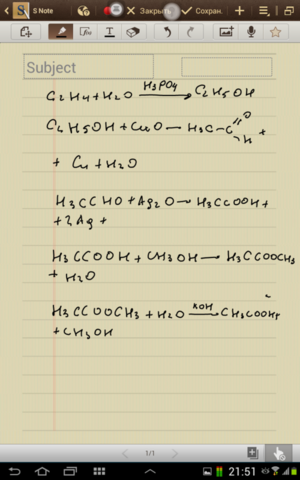 S Note
Закрыть
Сохран.
Subject
C2H4+H2O H3PO4→ C2H5OH
C2H5OH+CuO→H3C-C=O H +
+ Cu+H2O
H3CCHO+Ag2O→H3CCOOH+
+2Ag+
H3CCOOH+CH3OH→H3CCOOCH3
+ H2O
H3CCOOCH3+H2O KOH→ CH3COOH+
+CH3OH
1/1
21:51